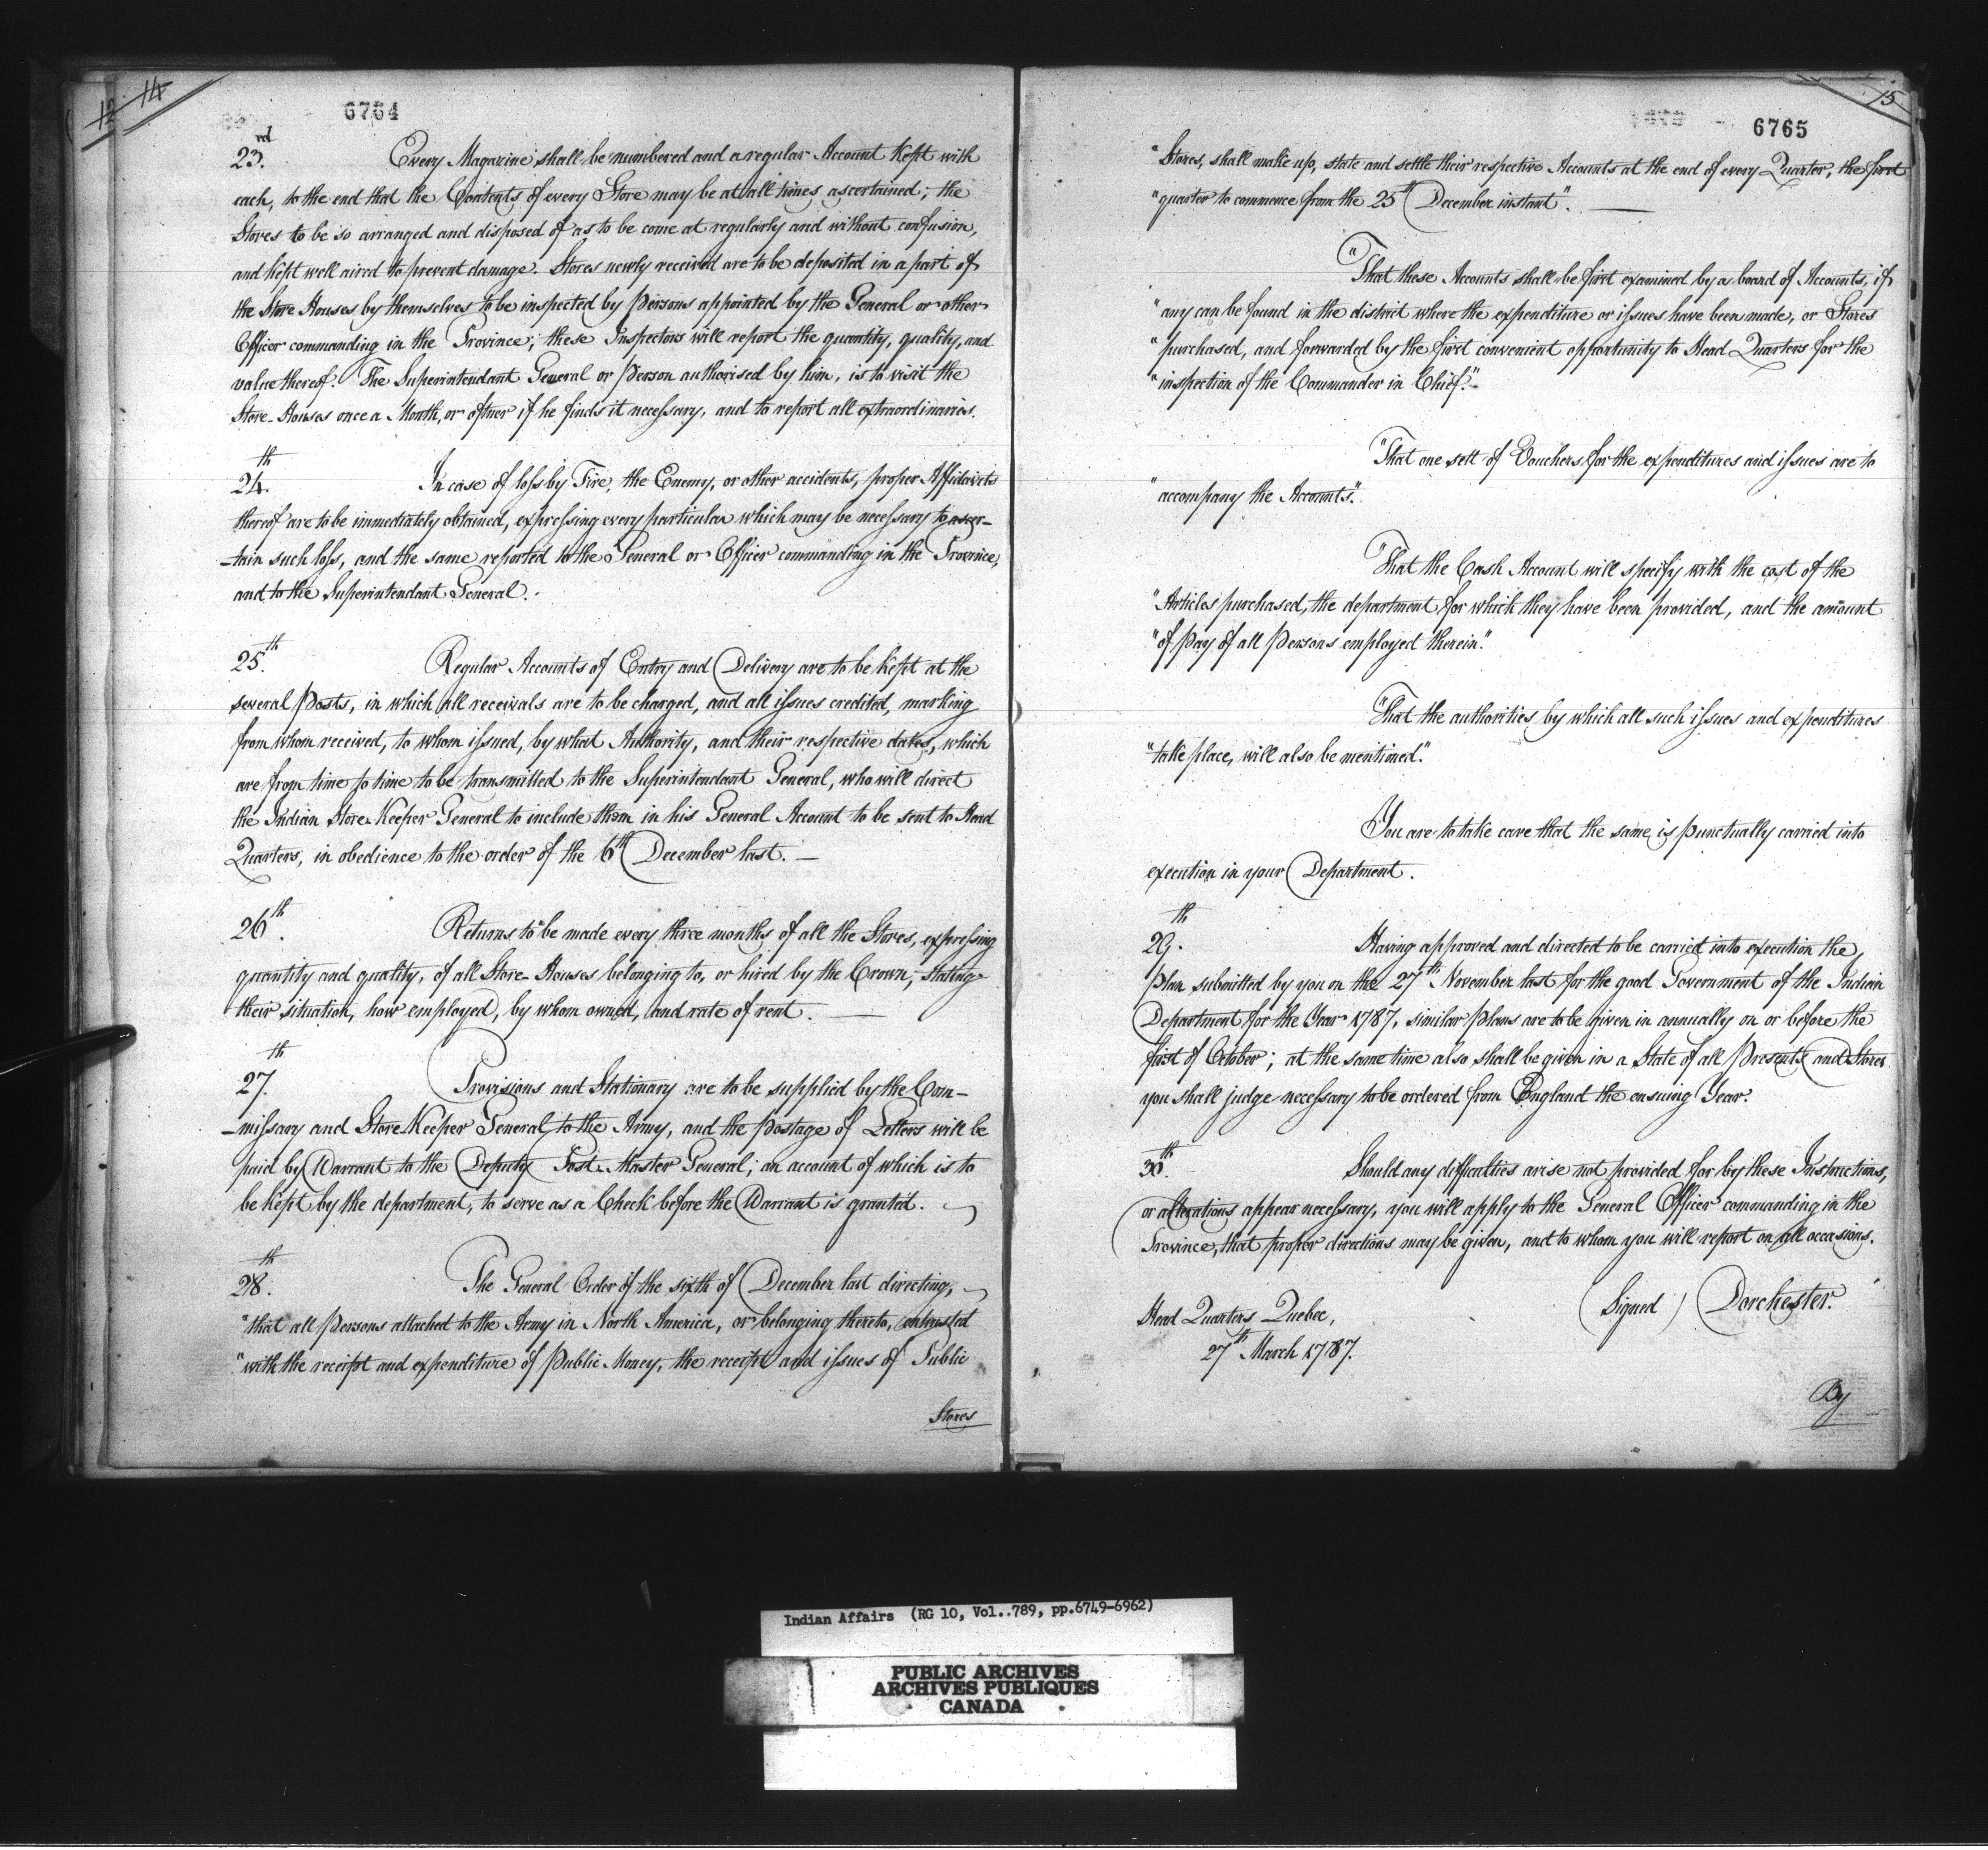 12 14
6764
23.rd Every Magazine shall be numbered and a regular Account kept with
each, to the end that the Contents of every Store may be at all times, ascertained; the
Stores to be so arranged and disposed of as to be come at regularly and without confusion,
and kept well aired to prevent damage. Stores newly received are to be deposited in a part of
the Store Houses by themselves to be inspected by Persons appointed by the General or other
Officer commanding in the Province; these Inspectors will report the quantity, quality, and
value thereof. The Superintendant General or Person authorised by him, is to visit the
Store-Houses once a Month, or oftner if he finds it necessary, and to report all extraordinaries.
24.th In case of loss by Fire, the Enemy, or other accidents, proper Affidavits
thereof are to be immediately obtained, expressing every particular which may be necessary to ascer-
-tain such loss, and the same reported to the General or Officer commanding in the Province,
and to the Superintendant General.
25.th Regular Accounts of Entry and Delivery are to be kept at the
several Posts, in which all receivals are to be charged, and all issues credited, marking
from whom received, to whom issued, by what Authority, and their respective dates, which
are from time to time to be transmitted to the Superintendant General, who will direct
the Indian Store-Keeper General to include them in his General Account to be sent to Head
Quarters, in obedience to the order of the 6th December last. —
26th. Returns to be made every three months of all the Stores, expressing
quantity and quality, of all Store-Houses belonging to, or hired by the Crown; stating
their situation, how employed, by whom owned, and rate of rent. —
27.th Provisions and Stationary are to be supplied by the Com-
-missary and Store Keeper General to the Army, and the postage of Letters will be
paid by Warrant to the Deputy Post-Master General; an account of which is to
be kept by the department, to serve as a Check before the Warrant is granted.
28.th The General Order of the sixth of December last directing,
"that all Persons attached to the Army in North America, or belonging thereto, entrusted
"with the receipt and expenditure of Public Money, the receipt and issues of Public
Stores
15
6765
"Stores, shall make up, state and settle their respective Accounts at the end of every Quarter, the first
"quarter to commence from the 25th December instant". —
"That these Accounts shall be first examined by a board of Accounts, if
"any can be found in the district where the expenditure or issues have been made, or Stores
"purchased, and forwarded by the first convenient opportunity to Head Quarters for the
"inspection of the Commander in Chief."-
"That one sett of Vouchers for the expenditures and issues are to
"accompany the Accounts".
"That the Cash Account will specify with the cost of the
"Articles purchased, the department for which they have been provided, and the amount
"of Pay of all Persons employed therein."
"That the authorities by which all such issues and expenditures
"take place, will also be mentioned."
You are to take care that the same, is punctually carried into
execution in your Department.
29.th Having approved and directed to be carried into execution the
Plan submitted by you on the 27th November last for the good Government of the Indian
Department for the Year 1787, similar Plans are to be given in annually on or before the
first of October; at the same time also shall be given in a State of all Presents and Stores
you shall judge necessary to be ordered from England the ensuing Year.
30.th Should any difficulties arise not provided for by these Instructions,
or alterations appear necessary, you will apply to the General Officer commanding in the
Province, that proper directions may be given, and to whom you will report on all occasions.
(Signed) Dorchester.
Head Quarters Quebec,
27th March 1787.
By
Indian Affairs (RG 10, Vol..789, pp.6749-6962)
PUBLIC ARCHIVES
ARCHIVES PUBLIQUES
CANADA